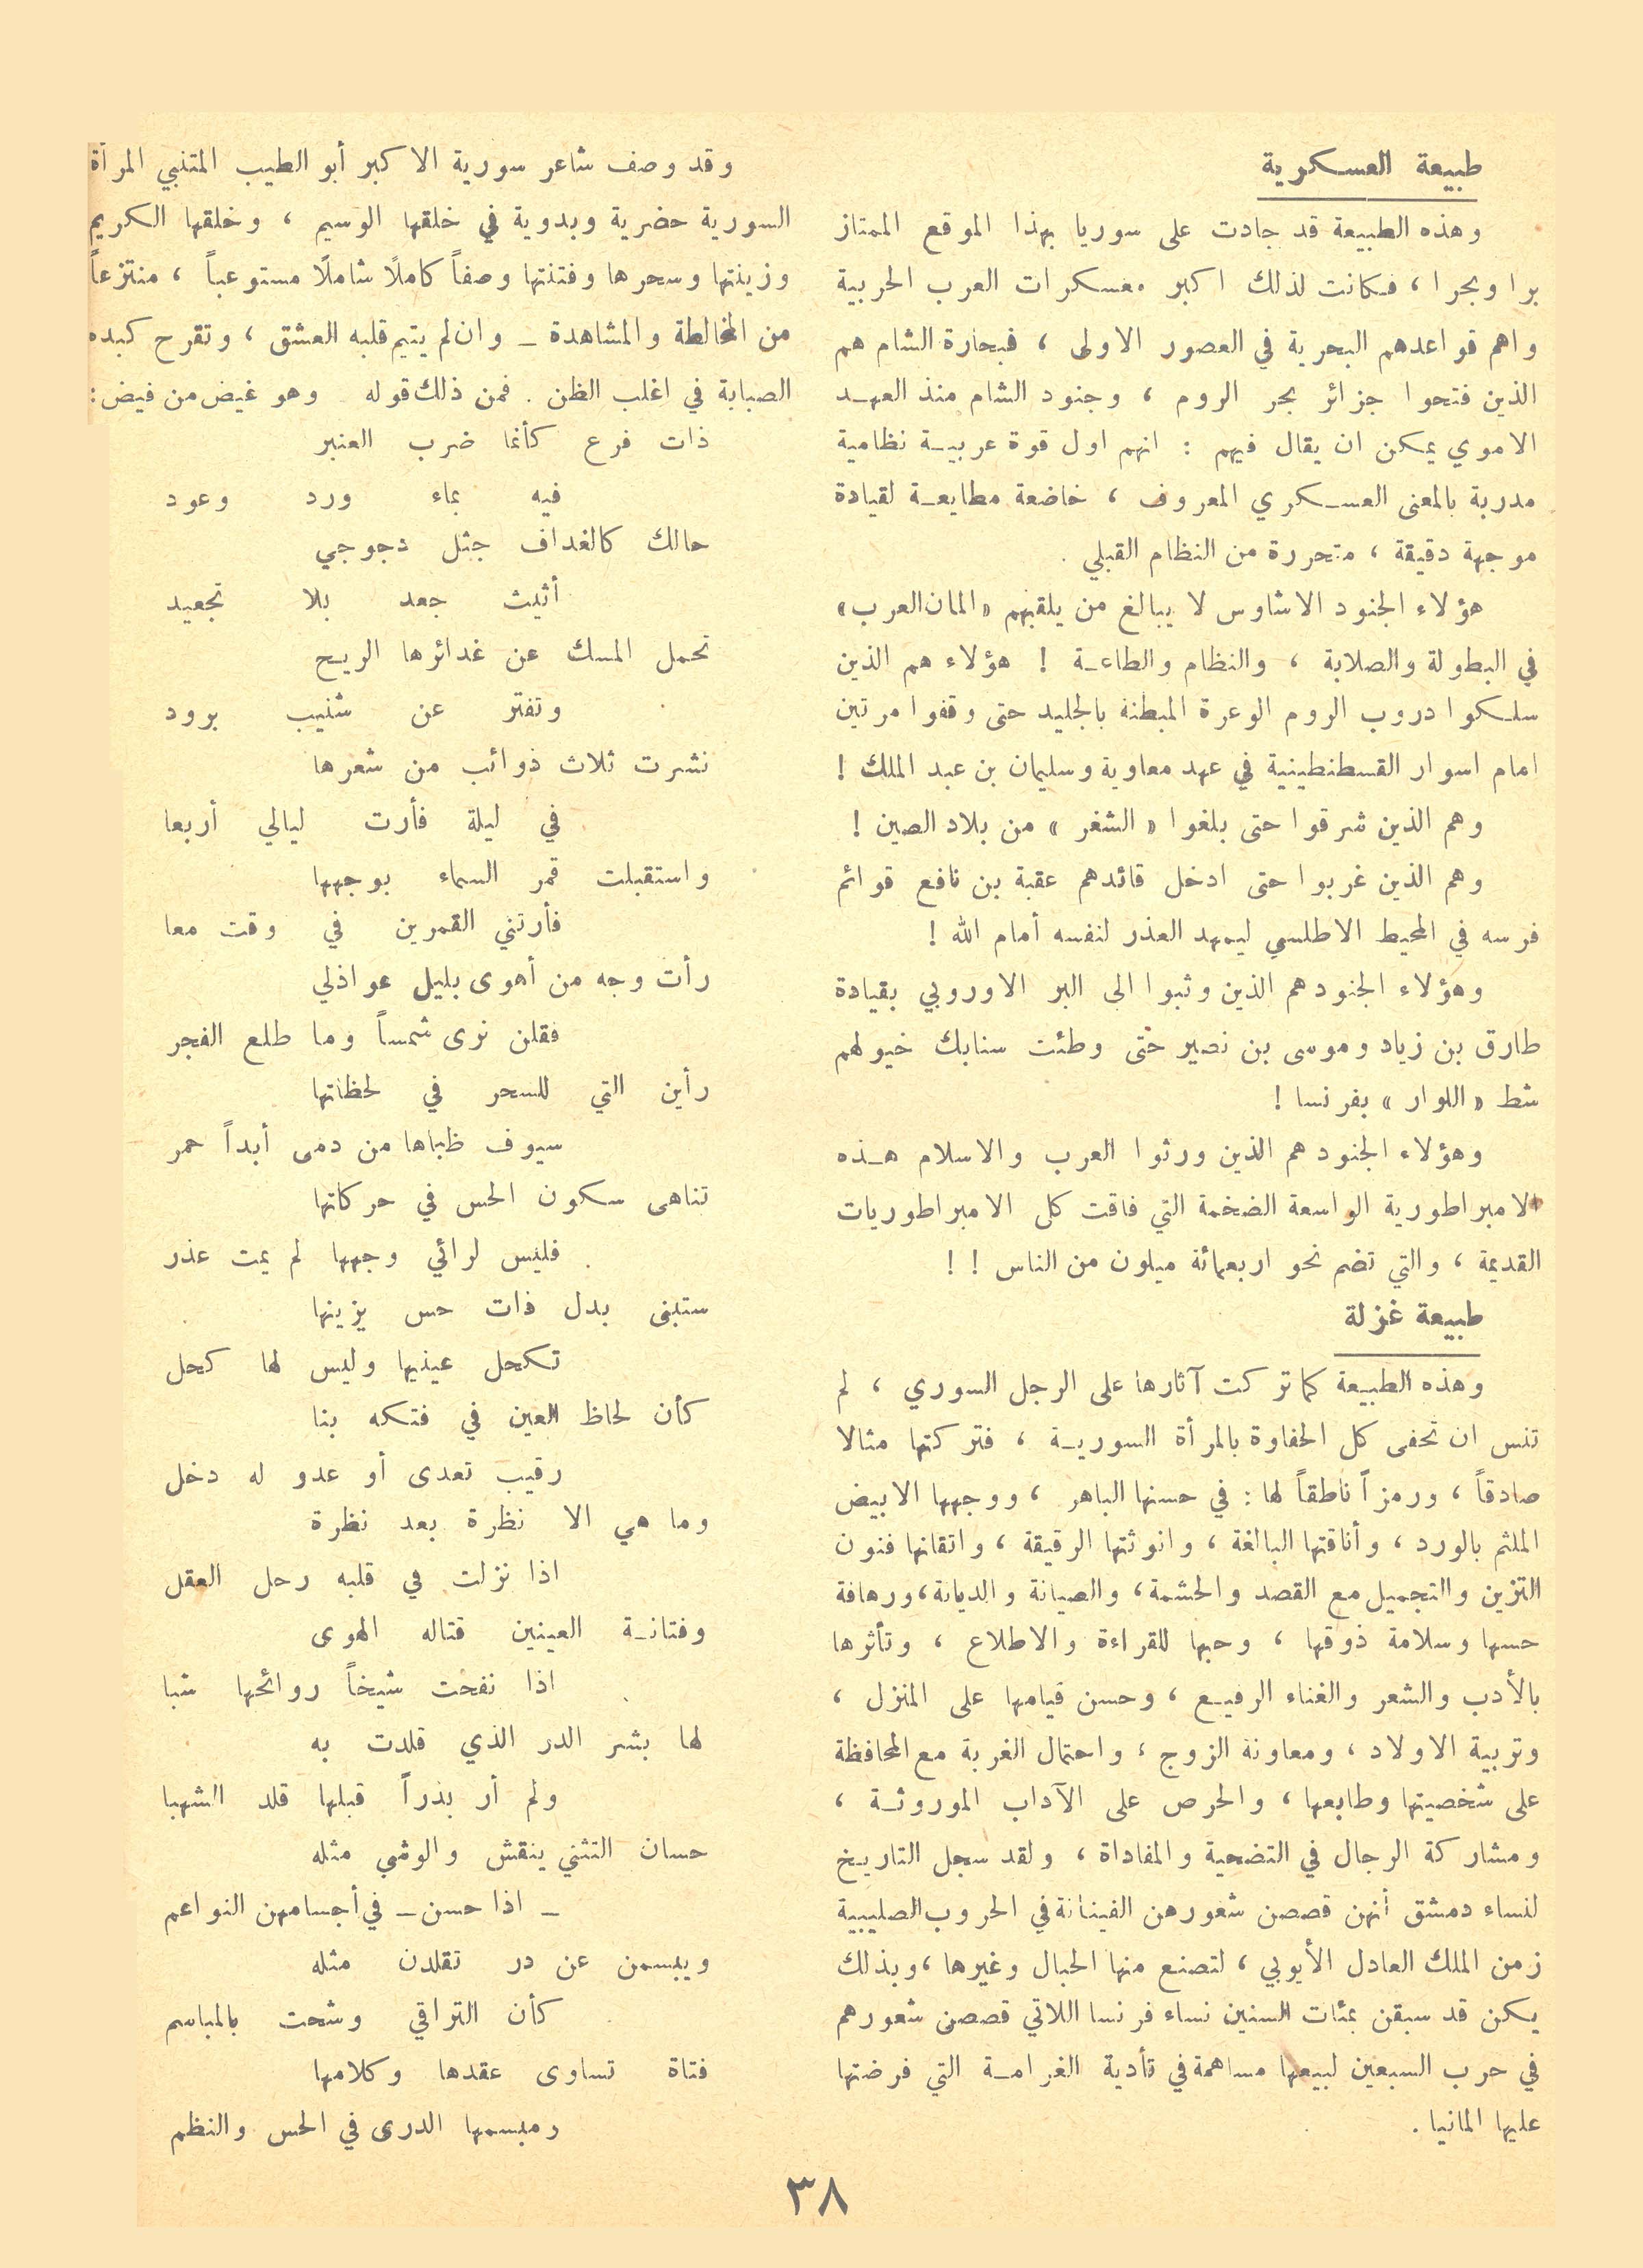 طبيعة العسكرية
وهذه الطبيعة قد جادت على سوريا بهذا الموقع الممتاز
برا وبحرا ، فكانت لذلك اكبر معسكرات العرب الحربية
واهم قواعدهم البحرية في العصور الاولى ، فبحارة الشام هم
الذين فتحوا جزائر بحر الروم ، وجنود الشام منذ العهد
الاموي يمكن ان يقال فيهم : انهم اول قوة عربية نظامية
مدربة بالمعنى العسكري المعروف ، خاضعة مطايعة لقيادة
موجهة دقيقة ، متحررة من النظام القبلي .
هؤلاء الجنود الاشاوس لا يبالغ من يلقبهم «المان العرب»
في البطولة والصلابة ، والنظام والطاعة ! هؤلاء هم الذين
سلكوا دروب الروم الوعرة المبطنة بالجليد حتى وقفوا مرتين
امام اسوار القسطنطينية في عهد معاوية وسليمان بن عبد الملك !
وهم الذين شرقوا حتى بلغوا « الشغر » من بلاد الصين !
وهم الذين غربوا حتى ادخل قائدهم عقبة بن نافع قوائم
فرسه في المحيط الاطلسي ليمهد العذر لنفسه أمام الله !
وهؤلاء الجنود هم الذين وثبوا الى البر الاوروبي بقيادة
طارق بن زياد وموسى بن نصير حتى وطئت سنابك خيولهم
شط « اللوار » بفرنسا !
وهؤلاء الجنود هم الذين ورثوا العرب والاسلام هذه
الامبراطورية الواسعة الضخمة التي فاقت كل الامبراطوريات
القديمة ، والتي تضم نحو اربعمائة ميلون من الناس ! !
طبيعة غزلة
وهذه الطبيعة كما تركت آثارها على الرجل السوري ، لم
تنس ان تحفى كل الحفاوة بالمرأة السورية ، فتركتها مثالا
صادقاً ، ورمزاً ناطقاً لها : في حسنها الباهر ، ووجهها الابيض
الملثم بالورد ، وأناقتها البالغة ، وانوثتها الرقيقة ، واتقانها فنون
التزين والتجميل مع القصد والحشمة ، والصيانة والديانة ، ورهافة
حسها وسلامة ذوقها ، وحبها للقراءة والاطلاع ، وتأثرها
بالأدب والشعر والغناء الرفيع ، وحسن قيامها على المنزل ،
وتربية الاولاد ، ومعاونة الزوج ، واحتمال الغربة مع المحافظة
على شخصيتها وطابعها ، والحرص على الآداب الموروثة ،
ومشاركة الرجال في التضحية والمفاداة ، ولقد سجل التاريخ
لنساء دمشق أنهن قصصن شعورهن الفينانة في الحروب الصليبية
زمن الملك العادل الأيوبي ، لتصنع منها الحبال وغيرها ، وبذلك
يكن قد سبقن بمئات السنين نساء فرنسا اللاتي قصصن شعورهم
في حرب السبعين لبيعها مساهمة في تأدية الغرامة التي فرضتها
عليها المانيا .
وقد وصف شاعر سورية الاكبر أبو الطيب المتنبي المرأة
السورية حضرية وبدوية في خلقها الوسيم ، وخلقها الكريم
وزينتها وسحرها وفتنتها وصفاً كاملًا شاملًا مستوعباً ، منتزعاً
من المخالطة والمشاهدة _ وان لم يتيم قلبه العشق ، وتقرح كبده
الصبابة في اغلب الظن . فمن ذلك قوله وهو غيض من فيض :
ذات فرع كأنما ضرب العنبر
فيه بماء ورد وعود
حالك كالغداف جثل دجوجي
أثيث جعد بلا تجعيد
تحمل المسك عن غدائرها الريح
وتفتر عن شنيب برود
نشرت ثلاث ذوائب من شعرها
في ليلة فأرت ليالي أربعا
واستقبلت قمر السماء بوجهها
فأرتني القمرين في وقت معا
رأت وجه من أهوى بليل عواذلي
فقلن نرى شمساً وما طلع الفجر
رأين التي للسحر في لحظاتها
سيوف ظباها من دمى أبداً حمر
تناهى سكون الحسن في حركاتها
فليس لرائي وجهها لم يمت عذر
ستبنى بدل ذات حسن يزينها
تكحل عينيها وليس لها كحل
كأن لحاظ العين في فتكه بنا
رقيب تعدى أو عدو له دخل
وما هي الا نظرة بعد نظرة
اذا نزلت في قلبه رحل العقل
وفتانة العينين قتاله الهوى
اذا نفحت شيخاً روائحها شبا
لها بشر الدر الذي قلدت به
ولم أر بدراً قبلها قلد الشهبا
حسان التثني ينقش والوشي مثله
_ اذا حسن _ في أجسامهن النواعم
ويبسمن عن در تقلدن مثله
كأن التراقي وشحت بالمباسم
فتاة تساوى عقدها وكلامها
ومبسمها الدرى في الحسن والنظم
٣٨